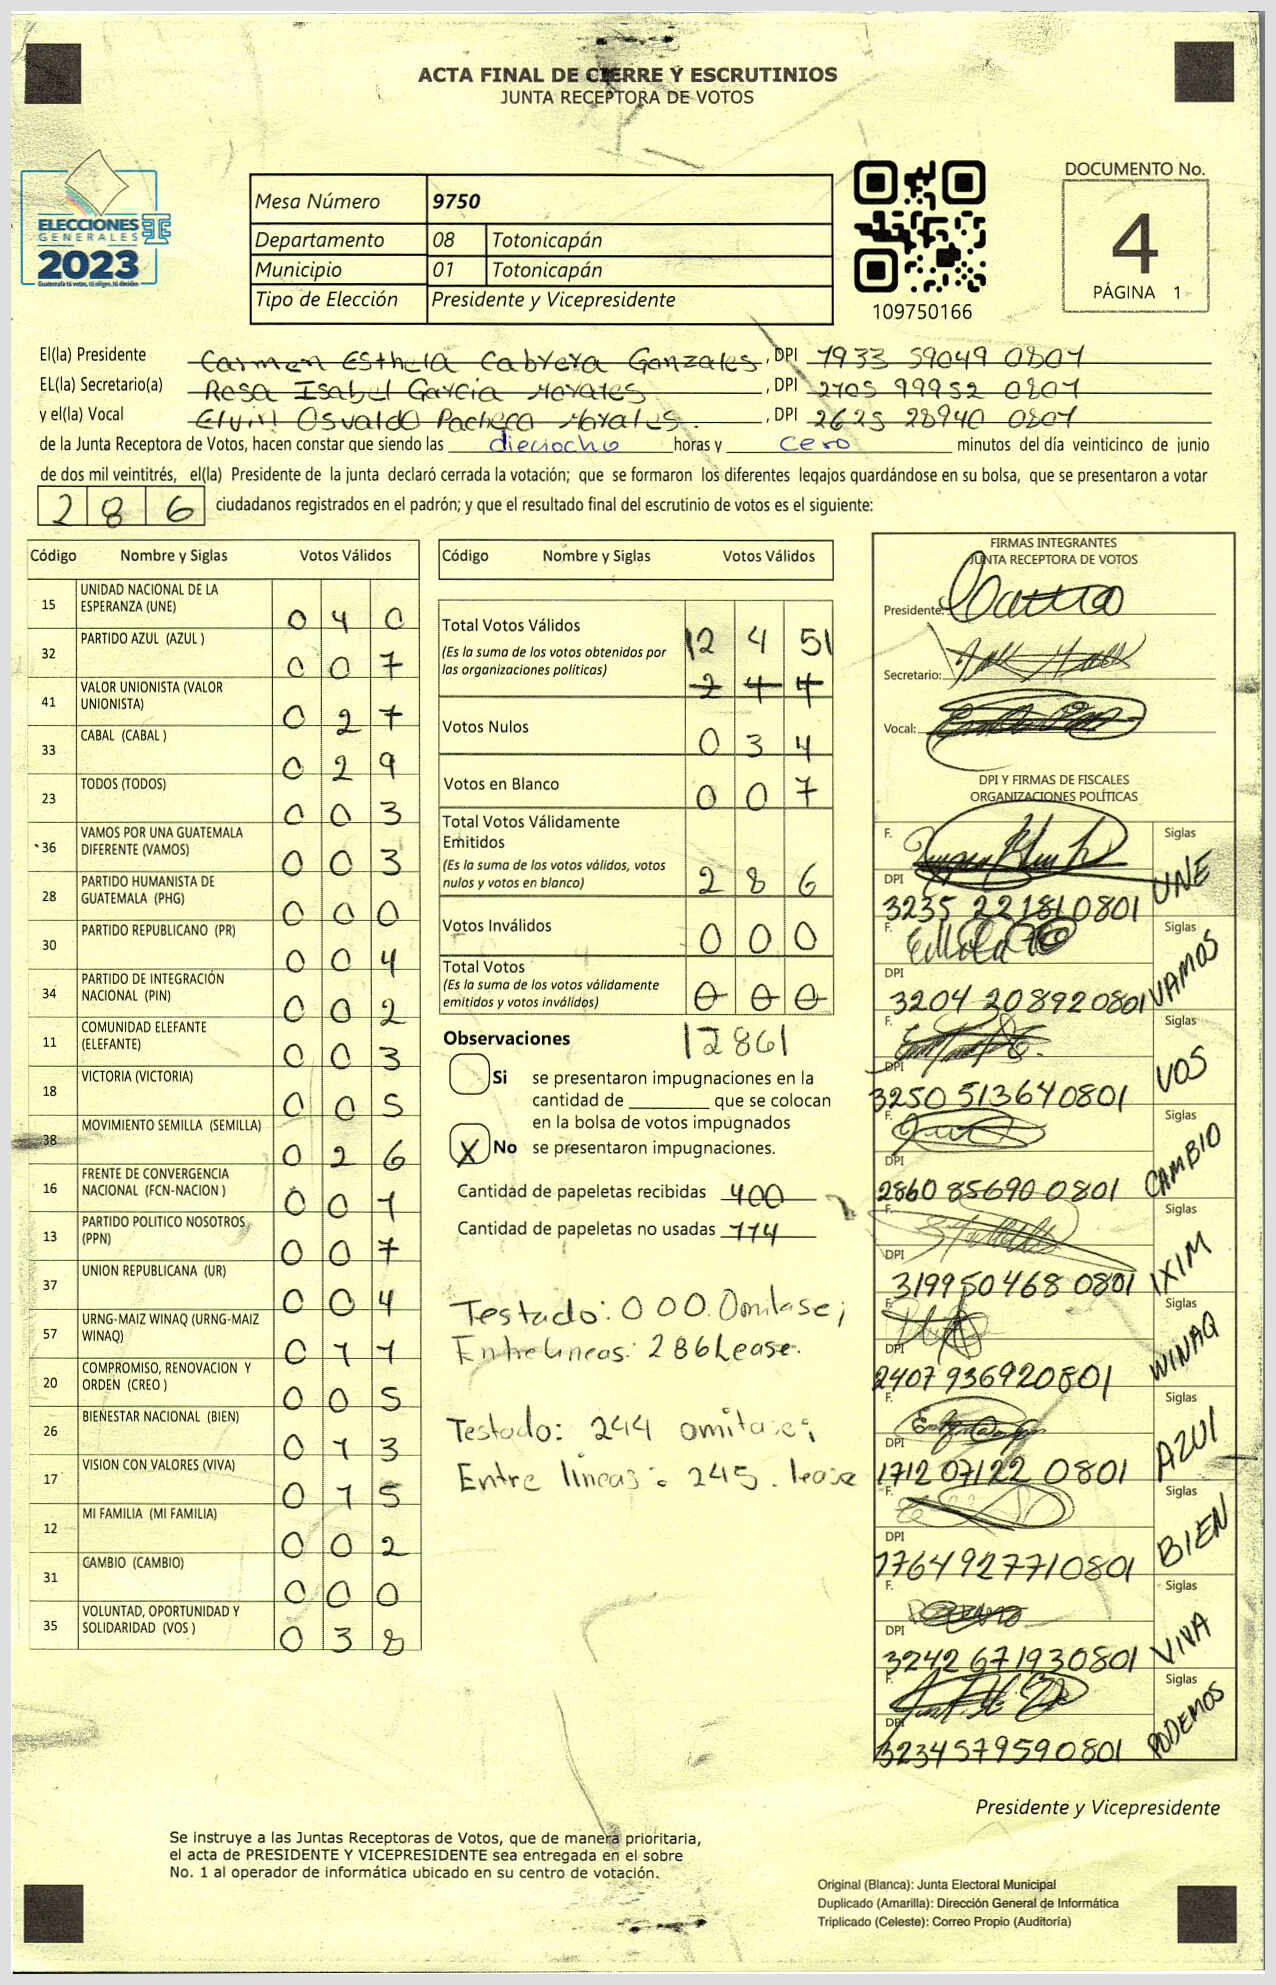 ACTA FINAL DE CIERRE Y ESCRUTINIOS
JUNTA RECEPTORA DE VOTOS
ELECCIONES
GENERALES
2023
Guatemala tú votas, tú eliges, tú decides
Mesa Número 9750
Departamento 08 Totonicapán
Municipio 01 Totonicapán
Tipo de Elección Presidente y Vicepresidente
109750166
DOCUMENTO No.
4
PÁGINA 1
El(la) Presidente Carmen Esthela Cabrera Gonzales, DPI 1933 59049 0801
EL(la) Secretario(a) Rosa Isabel García Morales, DPI 2705 99952 0801
y el(la) Vocal Elvin Osvaldo Pacheco Morales., DPI 2625 28940 0801
de la Junta Receptora de Votos, hacen constar que siendo las dieciocho horas y cero minutos del día veinticinco de junio
de dos mil veintitrés, el(la) Presidente de la junta declaró cerrada la votación; que se formaron los diferentes legajos guardándose en su bolsa, que se presentaron a votar
286 ciudadanos registrados en el padrón; y que el resultado final del escrutinio de votos es el siguiente:
Código Nombre y Siglas Votos Válidos
15 UNIDAD NACIONAL DE LA ESPERANZA (UNE) 0 4 0
32 PARTIDO AZUL (AZUL ) 0 0 7
41 VALOR UNIONISTA (VALOR UNIONISTA) 0 2 7
33 CABAL (CABAL ) 0 2 9
23 TODOS (TODOS) 0 0 3
36 VAMOS POR UNA GUATEMALA DIFERENTE (VAMOS) 0 0 3
28 PARTIDO HUMANISTA DE GUATEMALA (PHG) 0 0 0
30 PARTIDO REPUBLICANO (PR) 0 0 4
34 PARTIDO DE INTEGRACIÓN NACIONAL (PIN) 0 0 2
11 COMUNIDAD ELEFANTE (ELEFANTE) 0 0 3
18 VICTORIA (VICTORIA) 0 0 5
38 MOVIMIENTO SEMILLA (SEMILLA) 0 2 6
16 FRENTE DE CONVERGENCIA NACIONAL (FCN-NACION ) 0 0 1
13 PARTIDO POLITICO NOSOTROS (PPN) 0 0 7
37 UNION REPUBLICANA (UR) 0 0 4
57 URNG-MAIZ WINAQ (URNG-MAIZ WINAQ) 0 1 1
20 COMPROMISO, RENOVACION Y ORDEN (CREO ) 0 0 5
26 BIENESTAR NACIONAL (BIEN) 0 1 3
17 VISION CON VALORES (VIVA) 0 1 5
12 MI FAMILIA (MI FAMILIA) 0 0 2
31 CAMBIO (CAMBIO) 0 0 0
35 VOLUNTAD, OPORTUNIDAD Y SOLIDARIDAD (VOS ) 0 3 8
Código Nombre y Siglas Votos Válidos
Total Votos Válidos |2 4 5|
(Es la suma de los votos obtenidos por las organizaciones políticas) 2 4 4
Votos Nulos 0 3 4
Votos en Blanco 0 0 7
Total Votos Válidamente Emitidos
(Es la suma de los votos válidos, votos nulos y votos en blanco) 2 8 6
Votos Inválidos 0 0 0
Total Votos
(Es la suma de los votos válidamente emitidos y votos inválidos) 0 0 0
|286|
Observaciones
Si se presentaron impugnaciones en la
cantidad de ________ que se colocan
en la bolsa de votos impugnados
X No se presentaron impugnaciones.
Cantidad de papeletas recibidas 400
Cantidad de papeletas no usadas 114
Testado: 000. Omitase;
Entre lineas: 286 Lease.
Testado: 244 omitase;
Entre líneas: 245. lease
FIRMAS INTEGRANTES
JUNTA RECEPTORA DE VOTOS
Presidente:
Secretario:
Vocal:
DPI Y FIRMAS DE FISCALES
ORGANIZACIONES POLÍTICAS
F. Siglas
DPI 3235 22181 0801 UNE
F. Siglas
DPI 3204 20892 0801 VAMOS
F. Siglas
DPI 3250 51364 0801 VOS
F. Siglas
DPI 2860 85690 0801 CAMBIO
F. Siglas
DPI 3199 50468 0801 IXIM
F. Siglas
DPI 2407 93692 0801 WINAQ
F. Siglas
DPI 1712 07122 0801 AZUL
F. Siglas
DPI 1764 92771 0801 BIEN
F. Siglas
DPI 3242 67193 0801 VIVA
F. Siglas
DPI 3234 57959 0801 PODEMOS
Presidente y Vicepresidente
Se instruye a las Juntas Receptoras de Votos, que de manera prioritaria,
el acta de PRESIDENTE Y VICEPRESIDENTE sea entregada en el sobre
No. 1 al operador de informática ubicado en su centro de votación.
Original (Blanca): Junta Electoral Municipal
Duplicado (Amarilla): Dirección General de Informática
Triplicado (Celeste): Correo Propio (Auditoría)